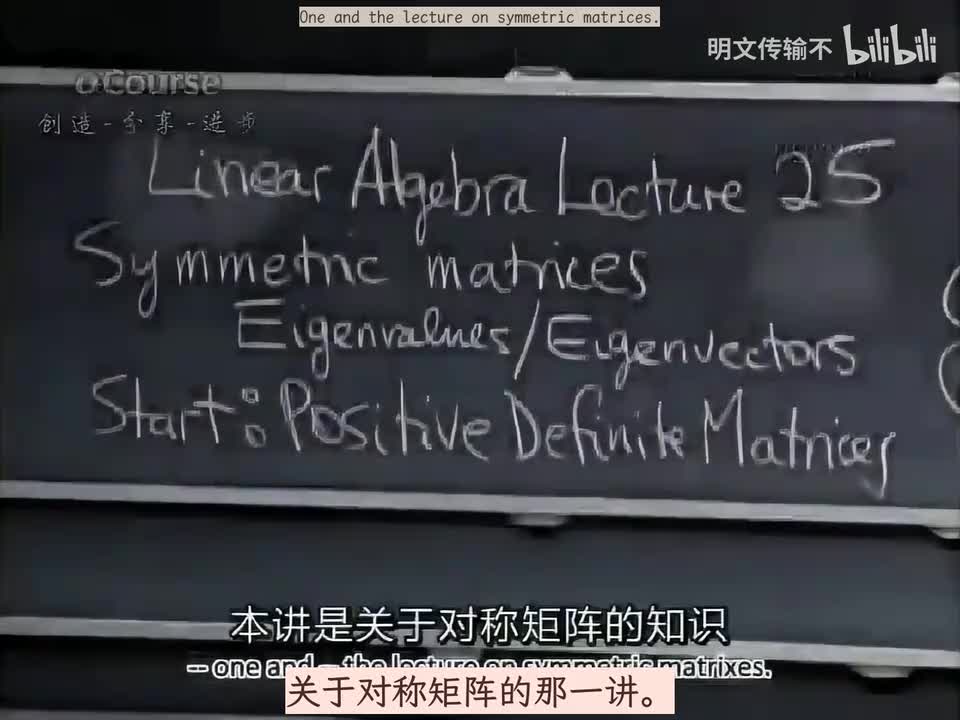 One and the lecture on symmetric matrices.
明文传输不 bilibili
oCourse
创造-分享-进步
Linear Algebra Lecture 25
Symmetric matrices
Eigenvalues/Eigenvectors
Start: Positive Definite Matrices
本讲是关于对称矩阵的知识
-- one and -- the lecture on symmetric matrixes.
关于对称矩阵的那一讲。